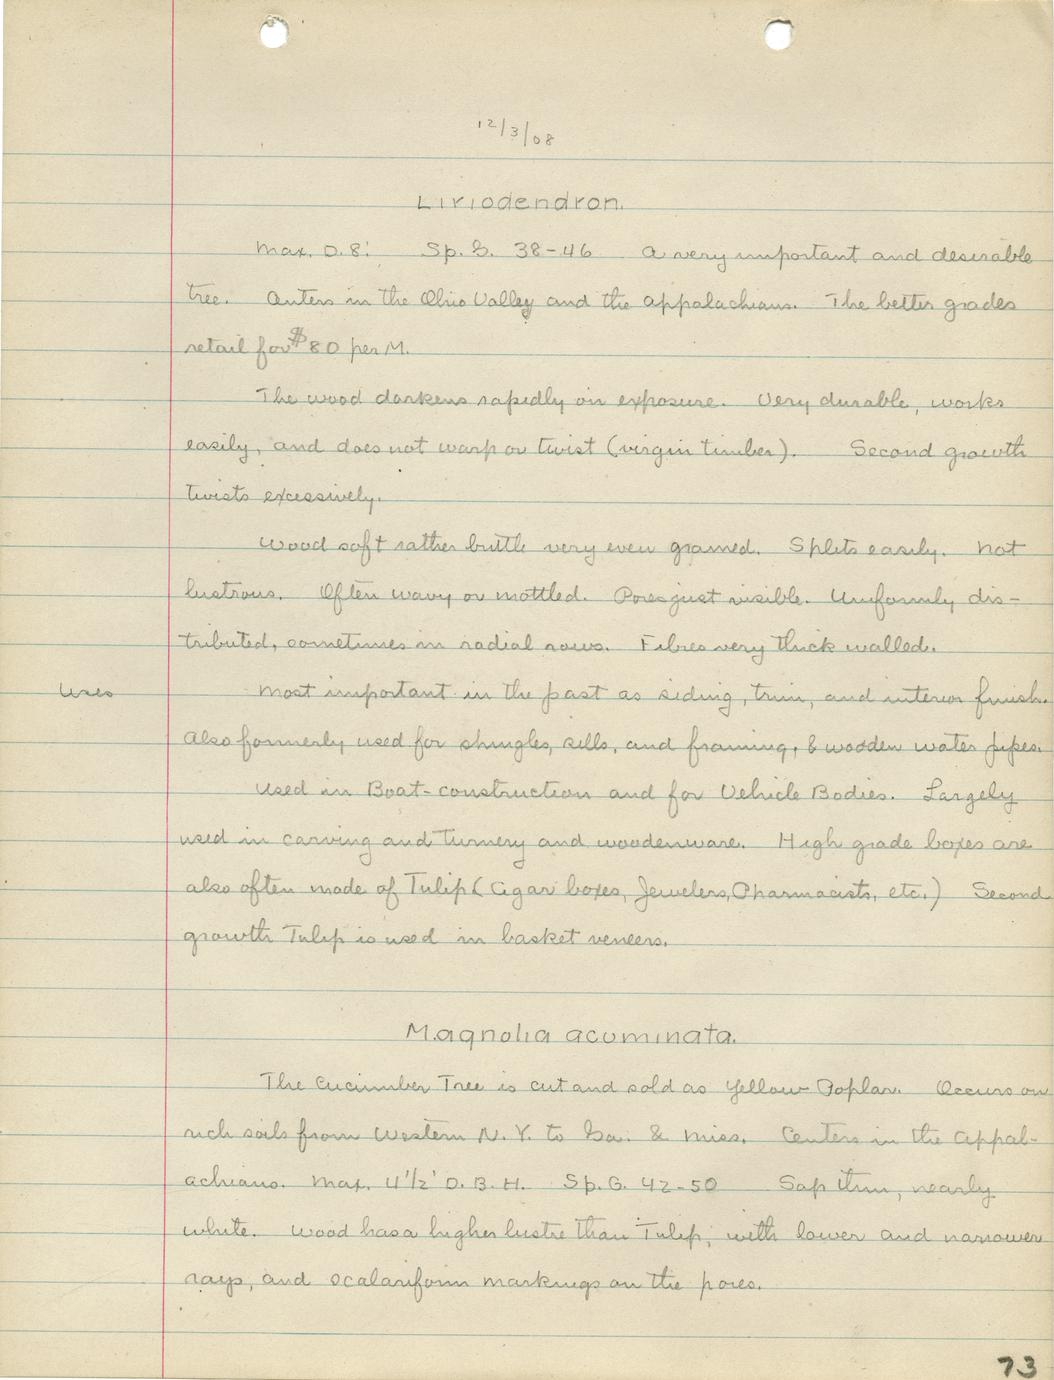 12/3/08
Liriodendron.
Max. D. 8'. Sp. G. 38-46 A very important and desirable
tree. Centers in the Ohio Valley and the Appalachians. The better grades
retail for $80 per M.
The wood darkens rapidly on exposure. Very durable, works
easily, and does not warp or twist (virgin timber). Second growth
twists excessively.
Wood soft rather brittle very even grained. Splits easily. Not
lustrous. Often wavy or mottled. Pores just visible. Uniformly dis-
tributed, sometimes in radial rows. Fibres very thick walled.
Uses
Most important in the past as siding, trim, and interior finish.
Also formerly used for shingles, sills, and framing, & wooden water pipes.
Used in Boat-construction and for Vehicle Bodies. Largely
used in carving and turnery and woodenware. High grade boxes are
also often made of Tulip (Cigar boxes, Jewelers, Pharmacists, etc.) Second
growth Tulip is used in basket veneers.
Magnolia acuminata.
The Cucumber Tree is cut and sold as Yellow Poplar. Occurs on
rich soils from Western N. Y. to Ga. & Miss. Centers in the Appal-
achians. Max. 4 1/2' D. B. H. Sp. G. 42-50 Sap thin, nearly
white. Wood has a higher lustre than Tulip, with lower and narrower
rays, and scalariform markings on the pores.
73